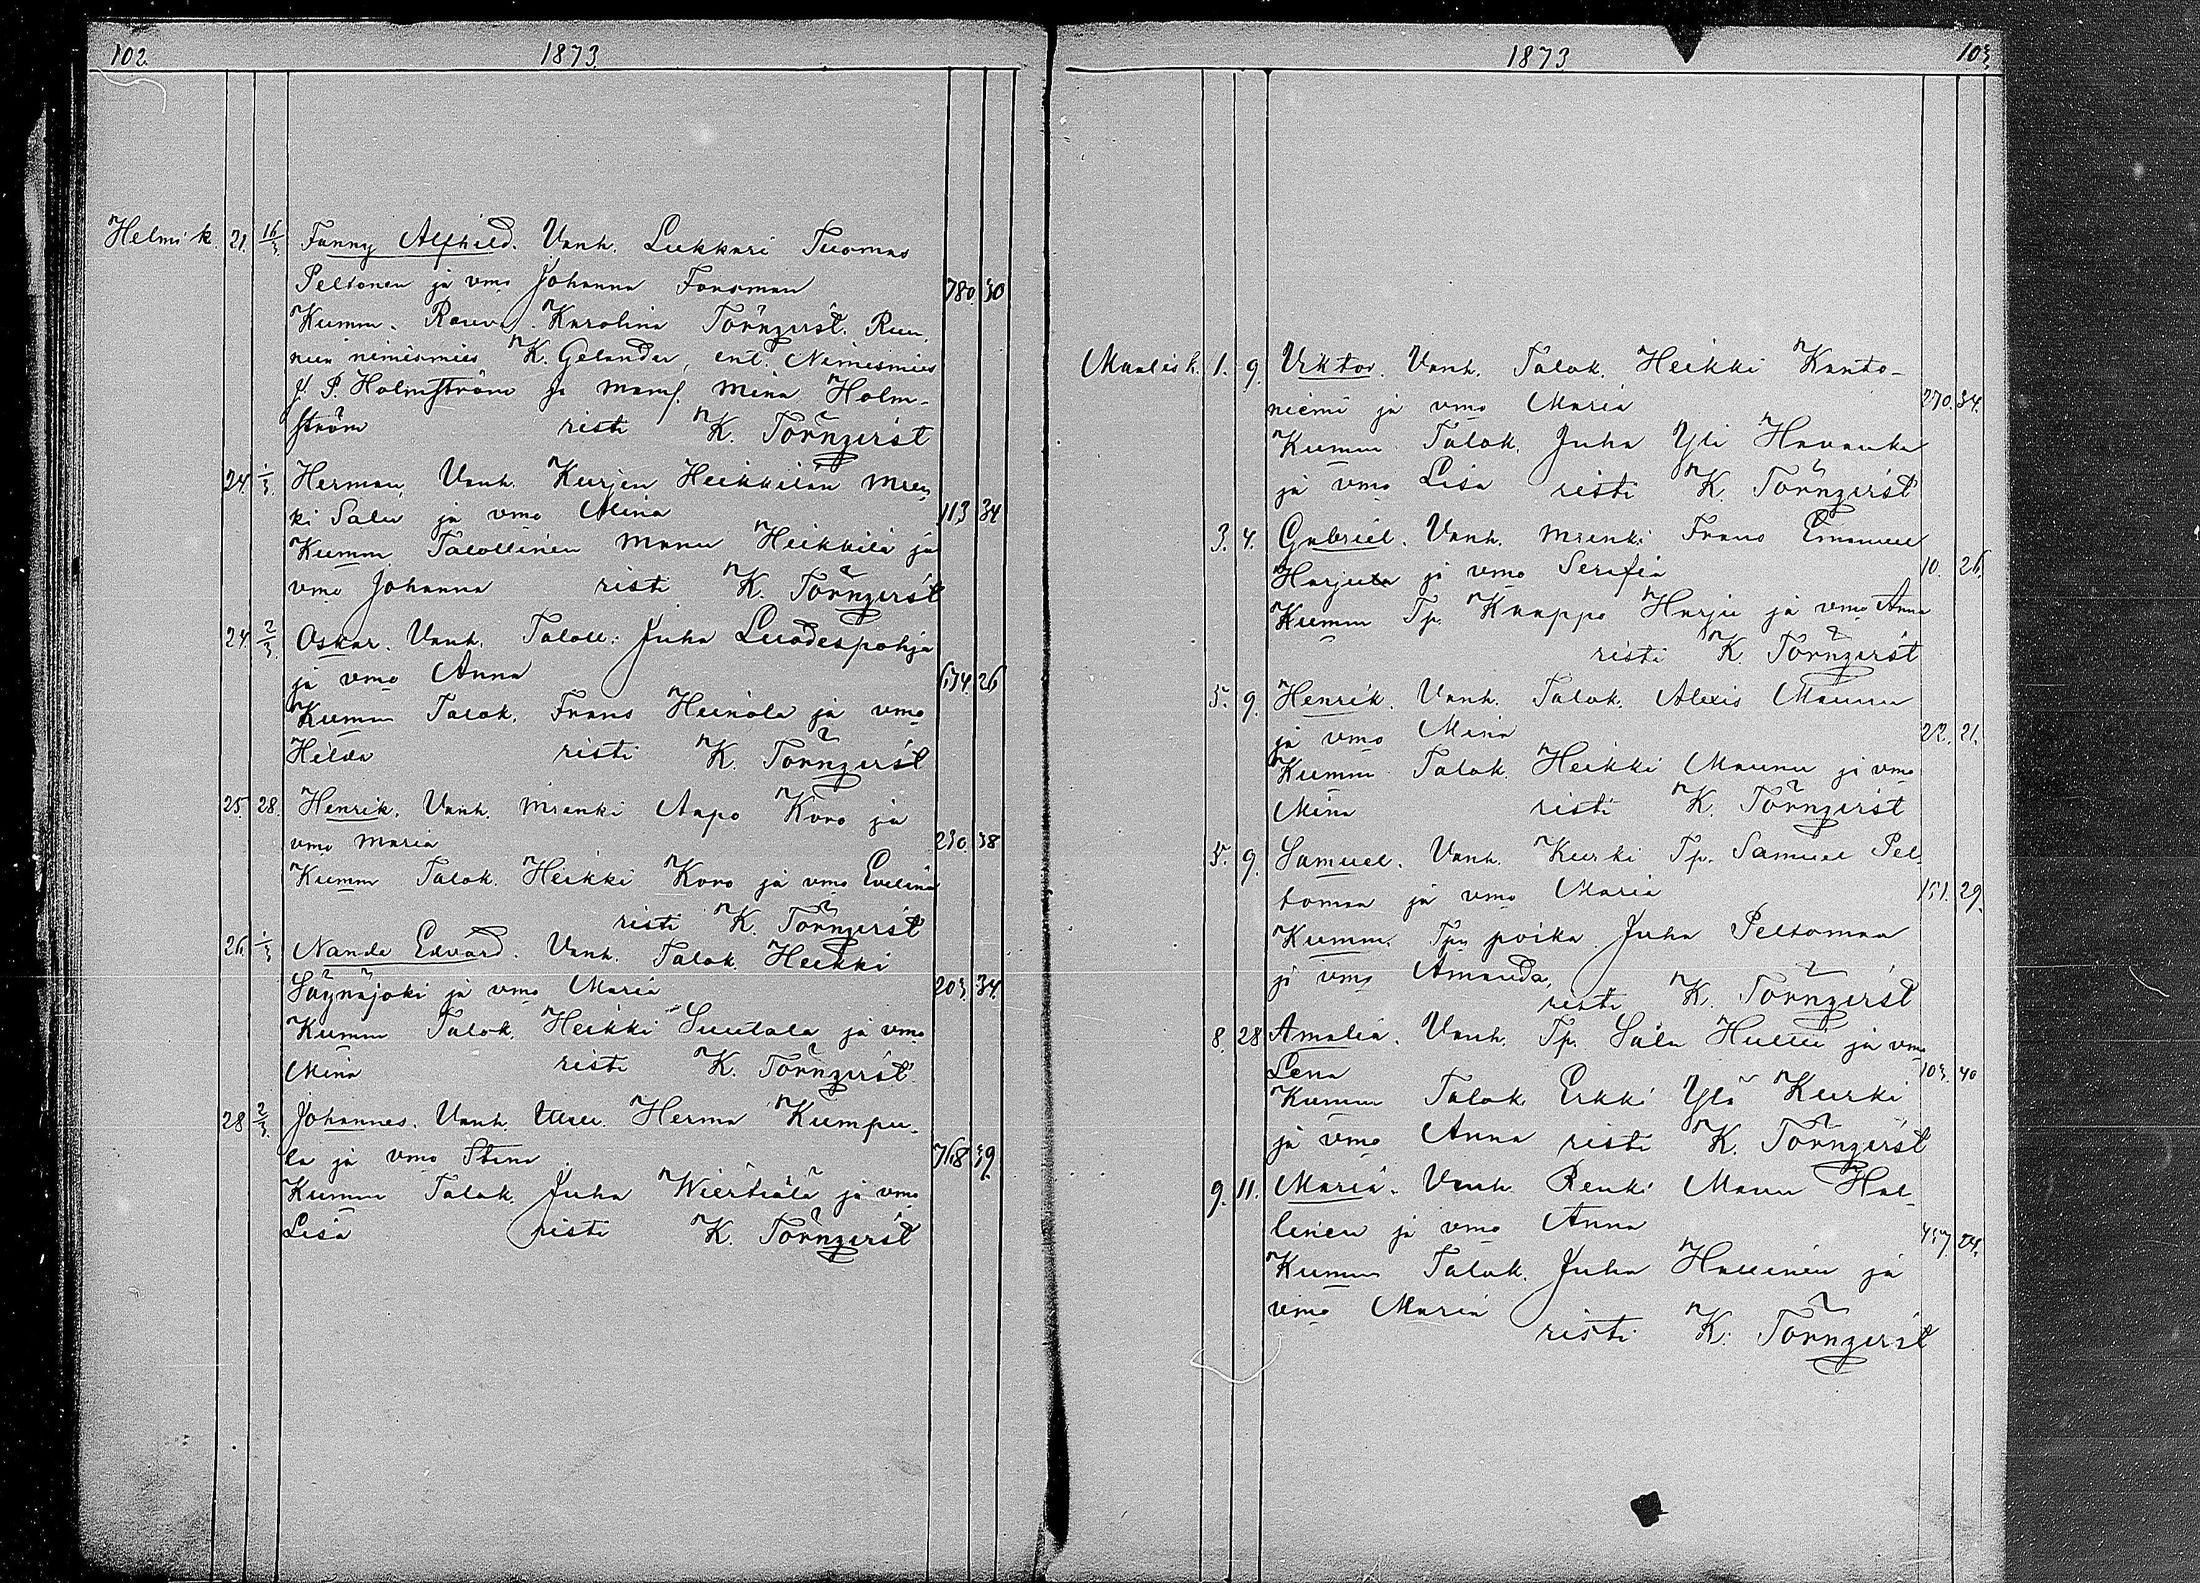 102 1873
Helmi k. 21. 16/3 Fanny Alfhild. Vanh. Lukkari Tuomas
Peltonen ja vmo Johanna Forsman 780. 30
Kumm. Rouva Karolina Törnqvist. Ruu
nun nimismies K. Gelander, ent. Nimismies
J. P. Holmström ja mams. Mina Holm-
ström risti K. Törnqvist
24. 1/3. Herman, Vanh. Kurjen Heikkilän mren
ki Salu ja vmo Mina 113 34
Kumm Talollinen Manu Heikkilä ja
vmo Johanna risti K. Törnqvist
24. 2/3. Oskar. Vanh. Taloll. Juha Luodespohja
ja vmo Anna 634. 26
Kumm Talok. Frans Heinola ja vmo
Hilda risti K. Törnqvist
25. 28. Henrik. Vanh. mrenki Aapo Koro ja
vmo Maria 230. 38
Kumm Talok. Heikki Koro ja vmo Evelina
risti K. Törnqvist
26. 1/3 Nande Edvard. Vanh. Talok. Heikki
Säynäjoki ja vmo Maria 203. 34.
Kumm Talok. Heikki Suutala ja vmo
Mina risti K. Törnqvist
28 2/3. Johannes. Vanh. Herma Kumpu-
la ja vmo Stina 768 39.
Kumm Talok. Juha Wiertiälä ja vmo
Lisa risti K. Törnqvist
1873 103.
Maalis k. 1. 9. Viktor. Vanh. Talok. Heikki Kanto-
niemi ja vmo Maria 270. 34.
Kumm. Talok. Juha Yli Havanka
ja vmo Lisa risti K. Törnqvist
3. 4. Gabriel. Vanh. mrenki Frans Emanuel
Harjula ja vmo Serafia 10. 26.
Kumm Tp. Kaappo Harju ja vmo Anna
risti K. Törnqvist
5. 9. Henrik. Vanh. Talok. Alexis Maunu
ja vmo Mina 22. 21.
Kumm Talok. Heikki Maunu ja vmo
Mina risti K. Törnqvist
5. 9. Samuel. Vanh. Kurki Tp. Samuel Pel
tomaa ja vmo Maria 151. 29.
Kumm. Tpn poika Juha Peltomaa
ja vmo Amanda, risti K. Törnqvist
8. 28 Amalia. Vanh. Tp. Salu Hullu ja vmo
Lena 103. 40
Kumm Talok Erkki Ylä Kurki
ja vmo Anna risti K. Törnqvist
9. 11. Maria. Vanh. Renki Manu Hal-
linen ja vmo Anna 457. 24.
Kumm Talok. Juha Hallinen ja
vmo Maria risti K. Törnqvist